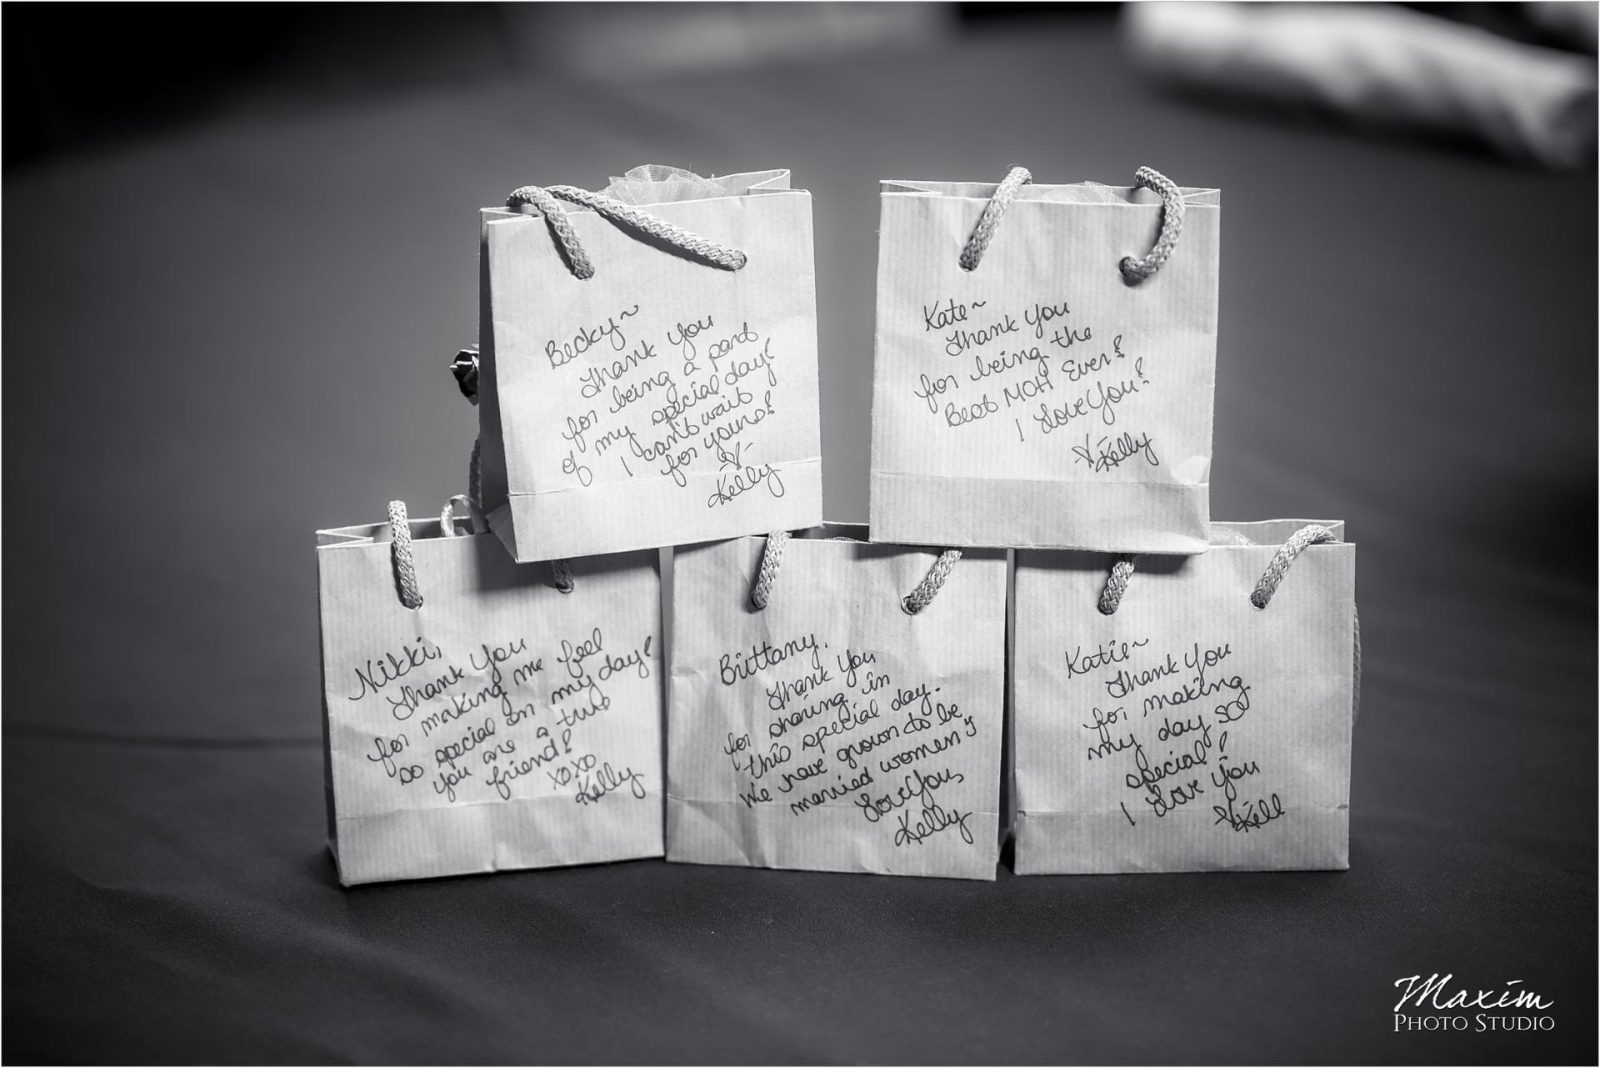 Becky~
Thank You
for being a part
of my special day!
I can't wait
for yours!
Kelly
Kate~
Thank You
for being the
Best MOH Ever!
I Love You!
Kelly
Nikki,
Thank You
for making me feel
so special on my day!
You are a true
friend!
xoxo
Kelly
Brittany,
Thank You
for sharing in
this special day.
We have grown to be
married women!
Love You,
Kelly
Katie~
Thank You
for making
my day so
special!
I Love You
Kell
Maxim
PHOTO STUDIO